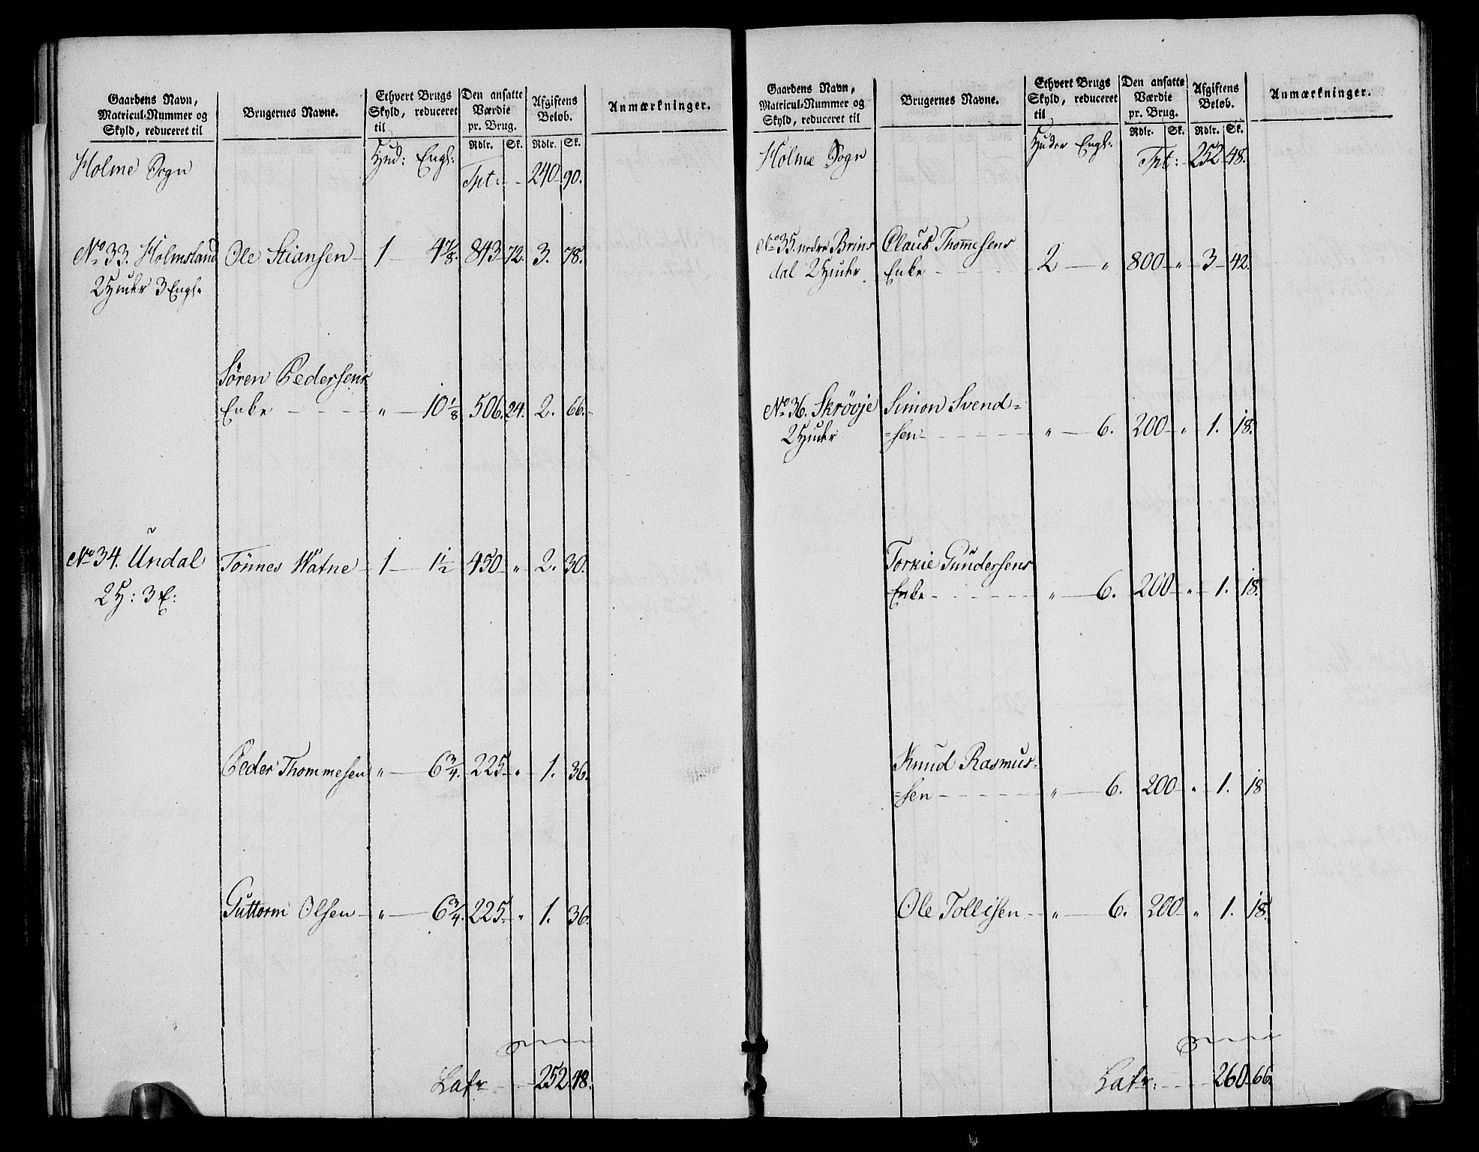 Gaardens Navn,
Matricul-Nummer og
Skyld, reduceret til
Brugernes Navne.
Ethvert Brugs
Skyld, reduceret
til
Den ansatte
Værdie
pr. Brug.
Rdlr. Sk.
Afgiftens
Beløb.
Rdlr. Sk.
Anmærkninger.
Holme Sogn
Hud: Engl:
Tpt: - 240 90.
No 33. Holmsland Ole Stiansen 1 4 7/8. 843 72. 3. 78.
2 Huder 3 Engl:
Søren Pedersens
Enke " 10 1/8 506. 24. 2. 66.
No 34. Undal Tönnes Watne 1 1 1/2 450 " 2. 30.
2 H: 3 E:
Peder Thommesen " 6 3/4. 225 " 1. 36.
Guttorm Olsen " 6 3/4. 225 " 1. 36.
Latr 252 48.
Gaardens Navn,
Matricul-Nummer og
Skyld, reduceret til
Brugernes Navne.
Ethvert Brugs
Skyld, reduceret
til
Den ansatte
Værdie
pr. Brug.
Rdlr. Sk.
Afgiftens
Beløb.
Rdlr. Sk.
Anmærkninger.
Holme Sogn
Huder Engl:
Tpt: 252 48.
No 35. nedre Brins Claus Thomesens
dal 2 Huder Enke 2 " 800 " 3 42.
No 36. Skrövje Simon Svend=
2 Huder =sen " 6. 200 " 1. 18.
Torkie Gundersens
Enke " 6. 200 " 1. 18.
Knud Rasmus=
=sen " 6. 200 " 1. 18
Ole Tollisen " 6. 200 " 1. 18.
Latr: 260 66.